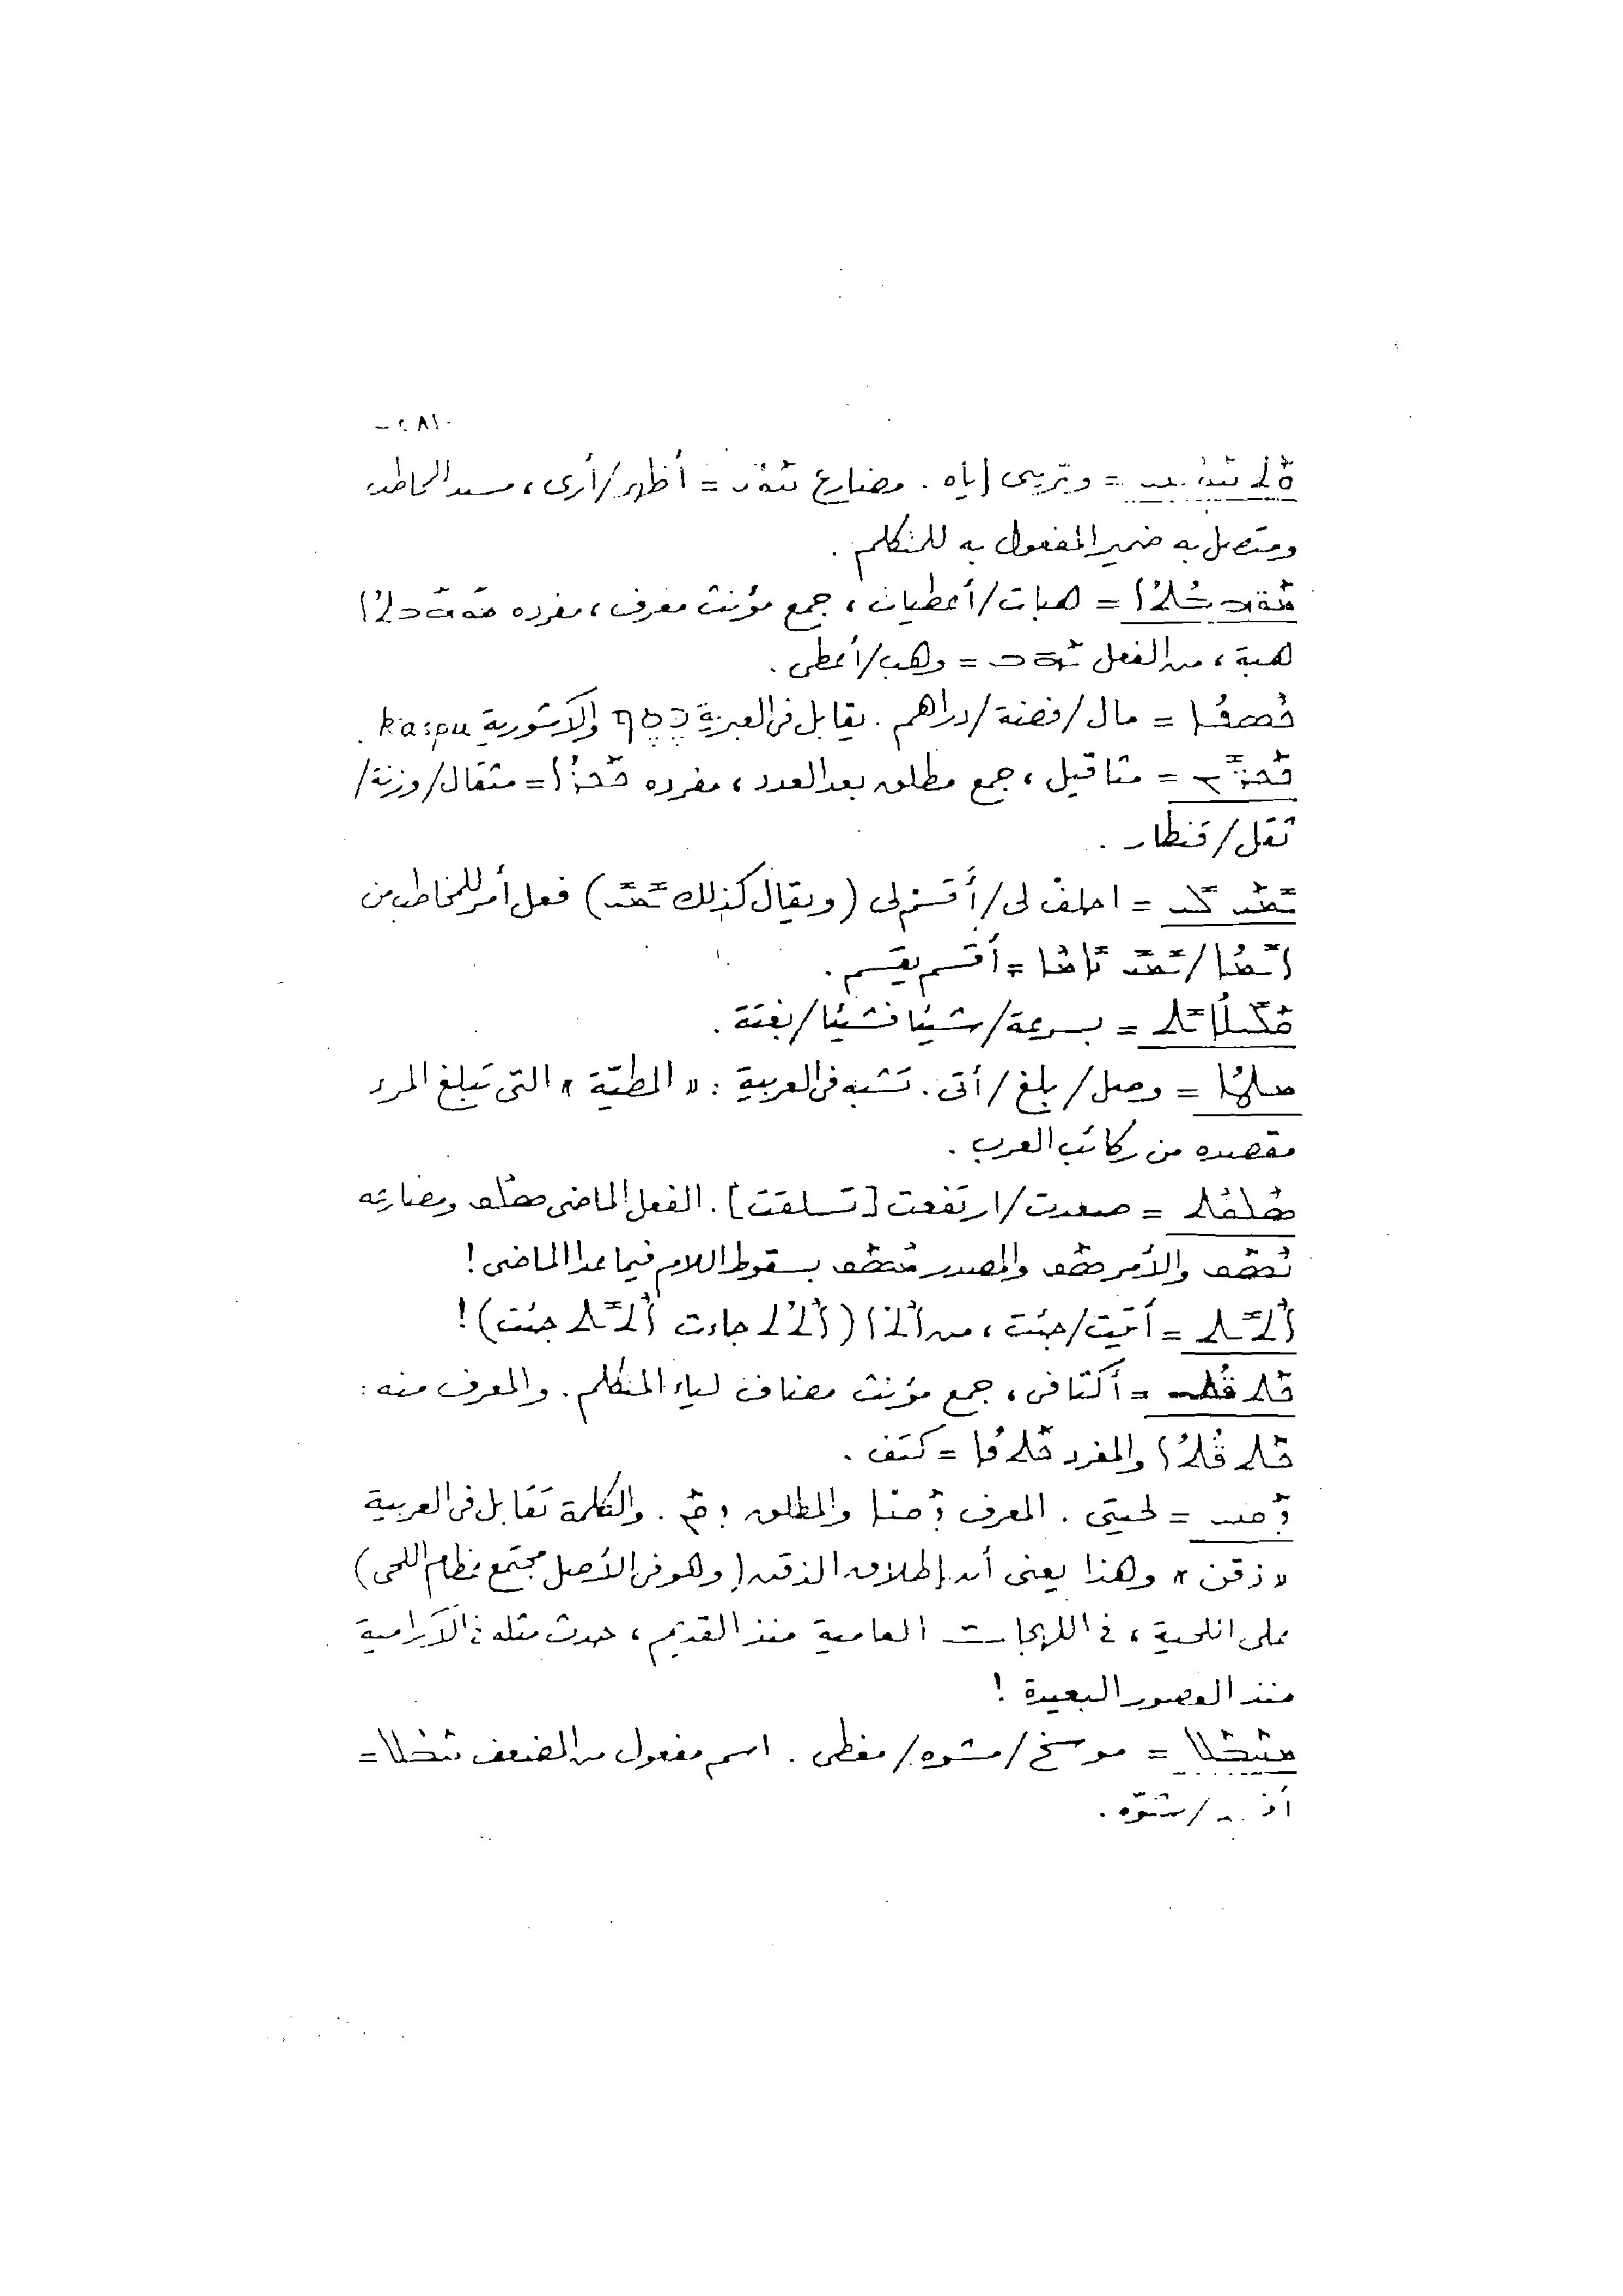 -٢٨١-
= وتريني إياه . مضارع = أظهر/أرى ، مسند المخاطب
ومتصل به ضمير المفعول به للمتكلم .
= هبات/أعطيات ، جمع مؤنث معرف ، مفرده
هبة ، من الفعل = وهب/أعطى .
ܟܣܦܐ = مال/فضة/دراهم . يقابل في العبرية כסף والآشورية kaspu .
= مثاقيل ، جمع مطلق بعد العدد ، مفرده ܟܟܪܐ = مثقال/وزنة/
ثقل/قنطار .
= احلف لى/أقسم لى (ويقال كذلك ) فعل أمر للمخاطب من
= أقسم يقسم .
= بسرعة/شيئا فشيئا/بغتة .
ܡܛܐ = وصل/بلغ/أتى . تشبه في العربية : « المطيّة » التى تبلغ المرء
مقصده من ركائب العرب .
ܣܠܩܬ = صعدت/ارتفعت [تسلقت] . الفعل الماضى ܣܠܩ ومضارعه
ܢܣܩ والأمر ܣܩ والمصدر ܡܣܩ بسقوط اللام فيما عدا الماضى !
ܐܬܝܬ = أتيت/جئت ، من ܐܬܐ ( ܐܬܬ جاءت ܐܬܝܬ جئت) !
ܟܬܦܬܝ = أكتافى ، جمع مؤنث مضاف لياء المتكلم . والمعرف منه :
ܟܬܦܬܐ والمفرد ܟܬܦܐ = كتف .
ܕܩܢܝ = لحيتى . المعرف ܕܩܢܐ والمطلق ܕܩܢ . والكلمة تقابل في العربية
« ذقن » وهذا يعنى أن إطلاق الذقن (وهو في الأصل مجتمع عظام اللحى)
على اللحية ، في اللهجات العامية منذ القديم ، حدث مثله في الآرامية
منذ العصور البعيدة !
= موسخ/مشوه/مغطى . اسم مفعول من المضعف =
/شوّه .